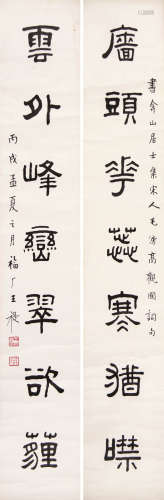 廧頭花蕊寒猶噤
書山居士集宋人毛滂高觀國詞句
雲外峰巒翠欲薶
丙戌孟夏之月福厂王禔